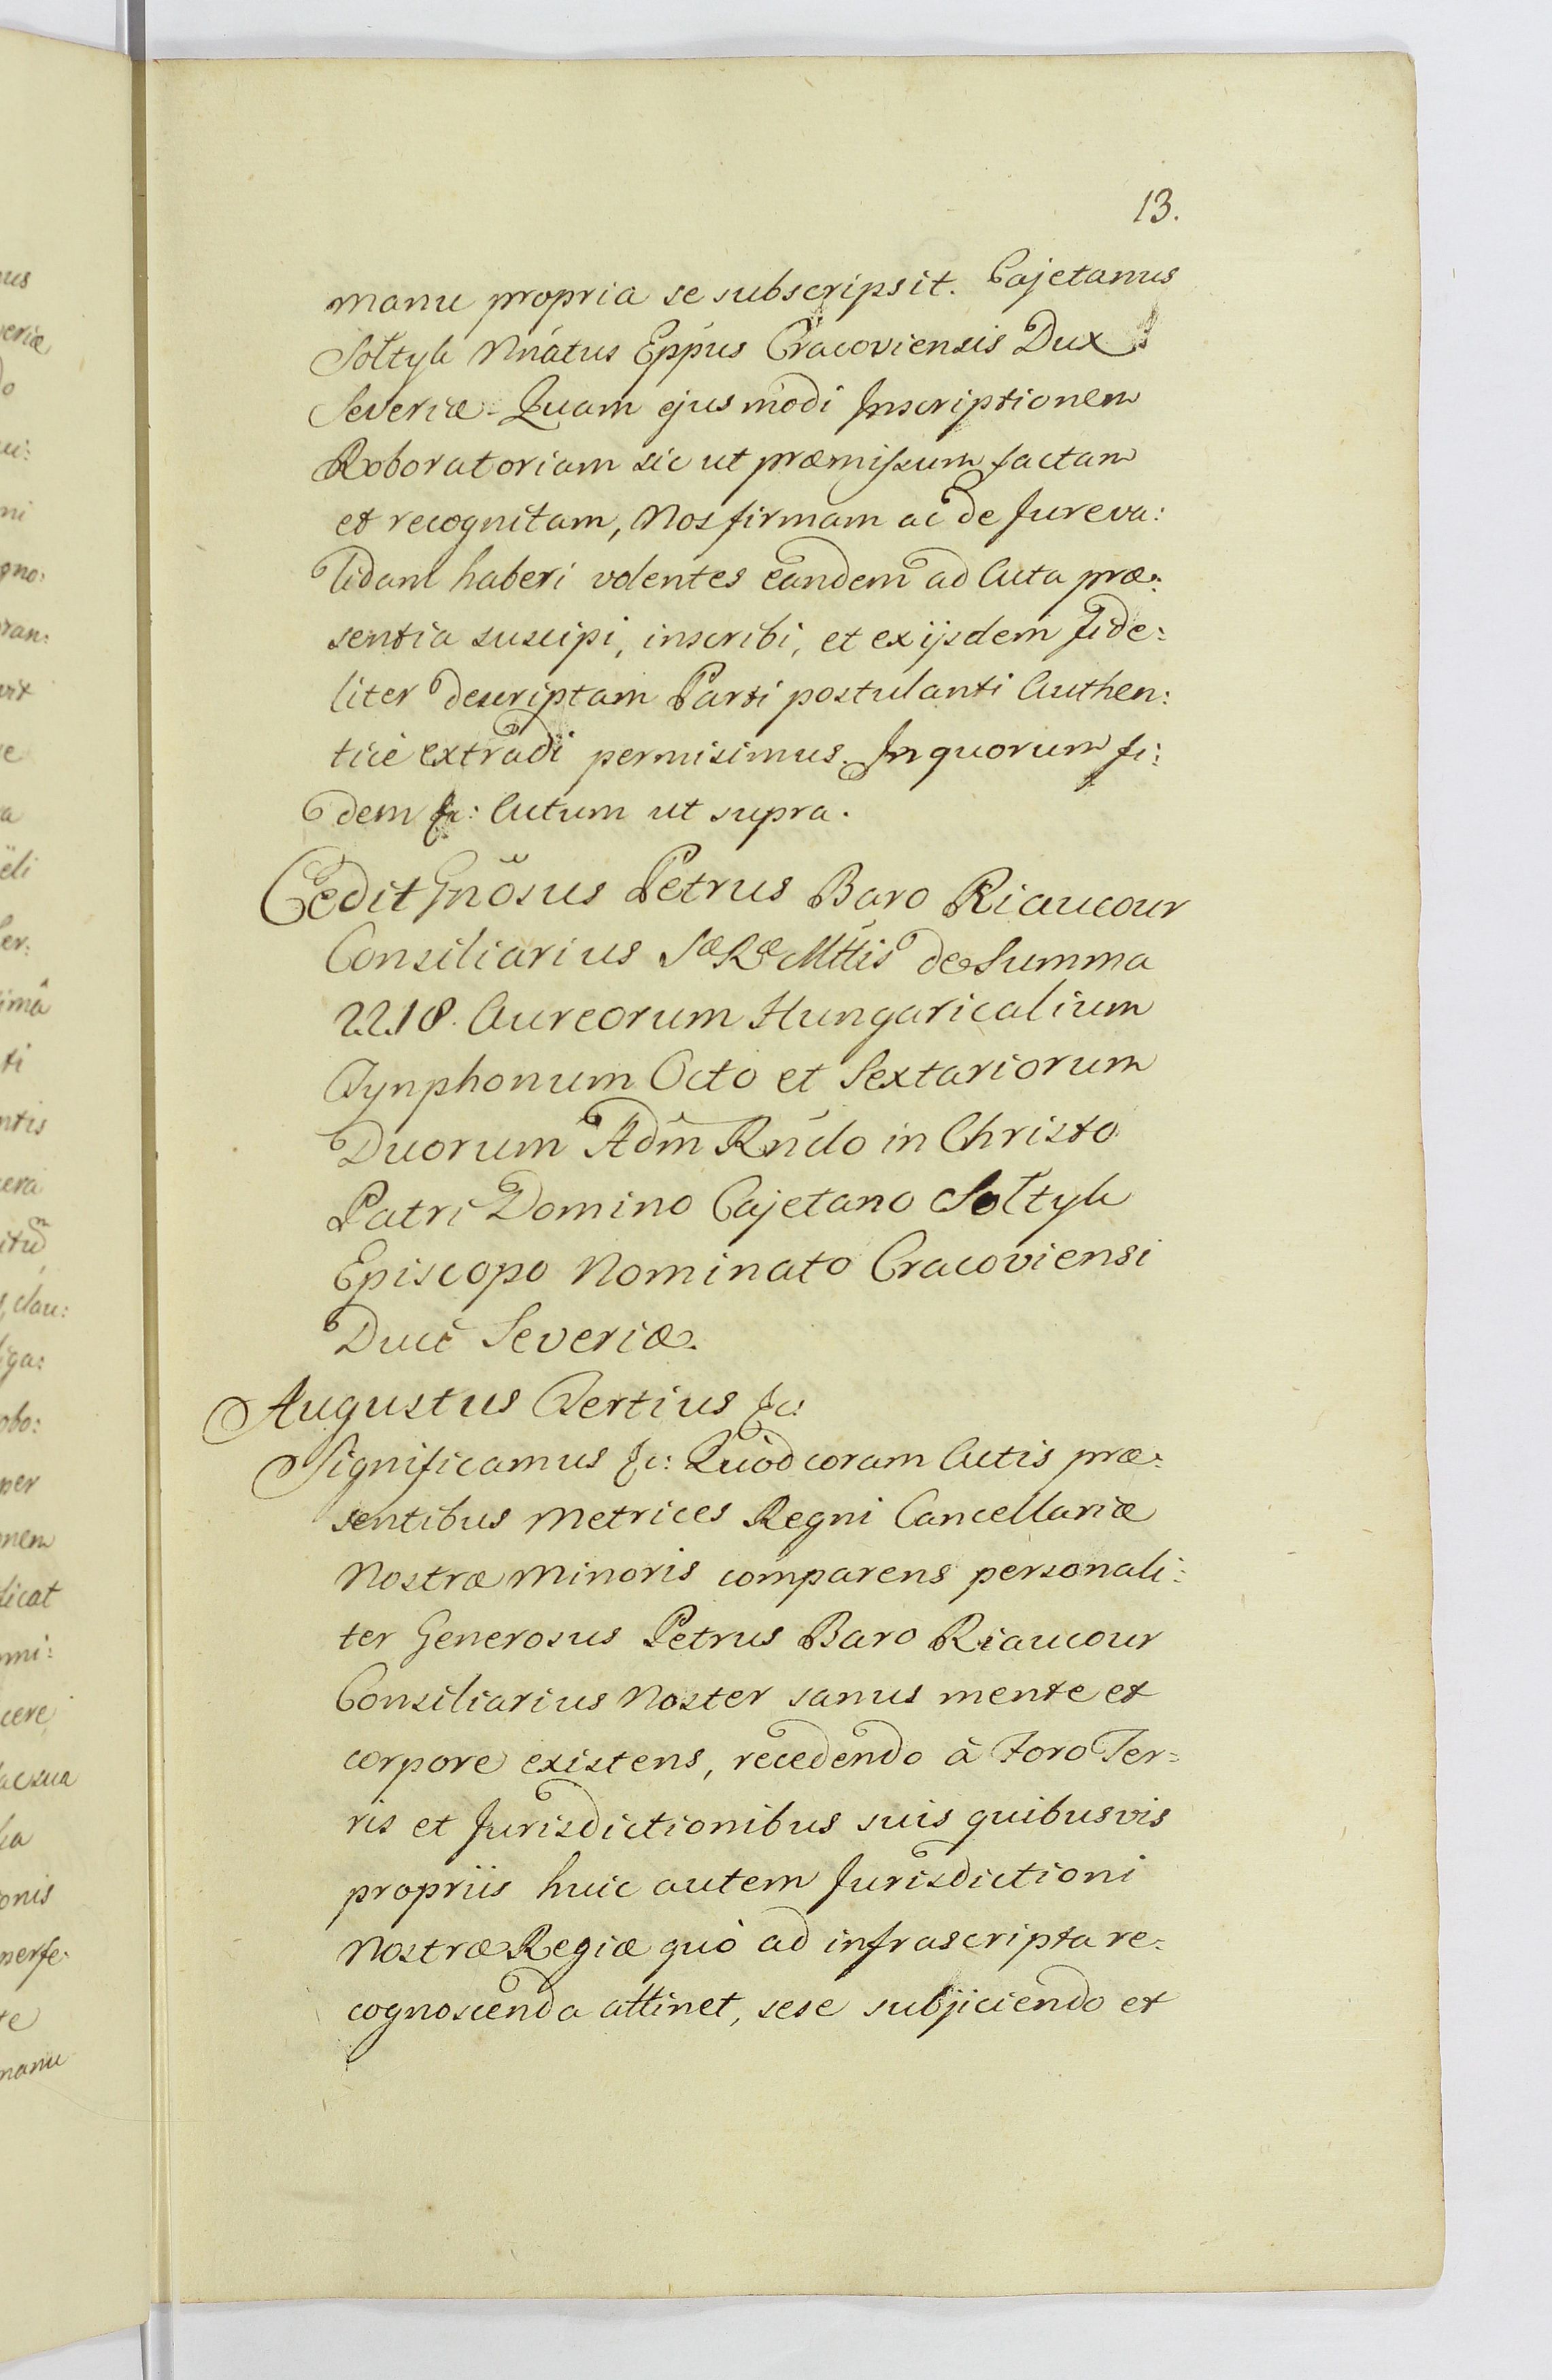 13.
manu propria se subscripsit. Cajetanus
Sołtyk Nnatus Eppus Cracoviensis Dux
Severiæ. Quam ejusmodi Inscriptionem
Roboratoriam sic ut præmissum factam
et recognitam, Nos firmam ac de Jure va:
lidam haberi volentes eandem ad Acta præ:
sentia suscipi, inscribi, et ex ijsdem fide:
liter descriptam Parti postulanti Authen:
ticè extradi permisimus. In quorum fi:
dem &c: Actum ut supra.
Cedit Gnosus Petrus Baro Riaucour
Consiliarius Sæ Ræ Mttis de Summa
2218. Aureorum Hungaricalium
Tynphonum Octo et Sextariorum
Duorum Adm Rndo in Christo
Patri Domino Cajetano Sołtyk
Episcopo Nominato Cracoviensi
Duci Severiæ.
Augustus Tertius &c:
Significamus &c: Quòd coram Actis præ:
sentibus Metrices Regni Cancellariæ
Nostræ Minoris comparens personali:
ter Generosus Petrus Baro Riaucour
Consiliarius Noster sanus mente et
corpore existens, recedendo à Foro Ter=
ris et Jurisdictionibus suis quibusvis
propriis huic autem Jurisdictioni
Nostræ Regiæ quò ad infrascripta re:
cognoscenda attinet, sese subjiciendo et